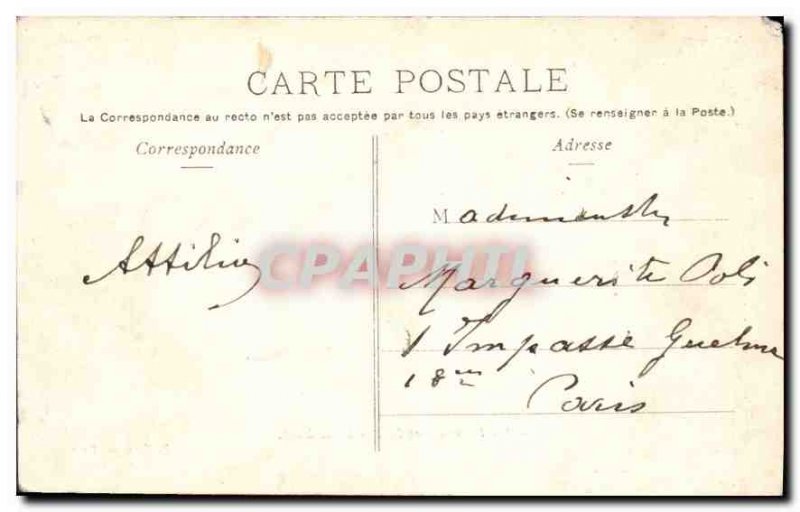 CARTE POSTALE
La Correspondance au recto n'est pas acceptée par tous les pays étrangers. (Se renseigner à la Poste.)
Correspondance
Adresse
Attilio
CPAPHTI
Mademoiselle
Marguerite Poli
1 Impasse Guelma
18me
Paris